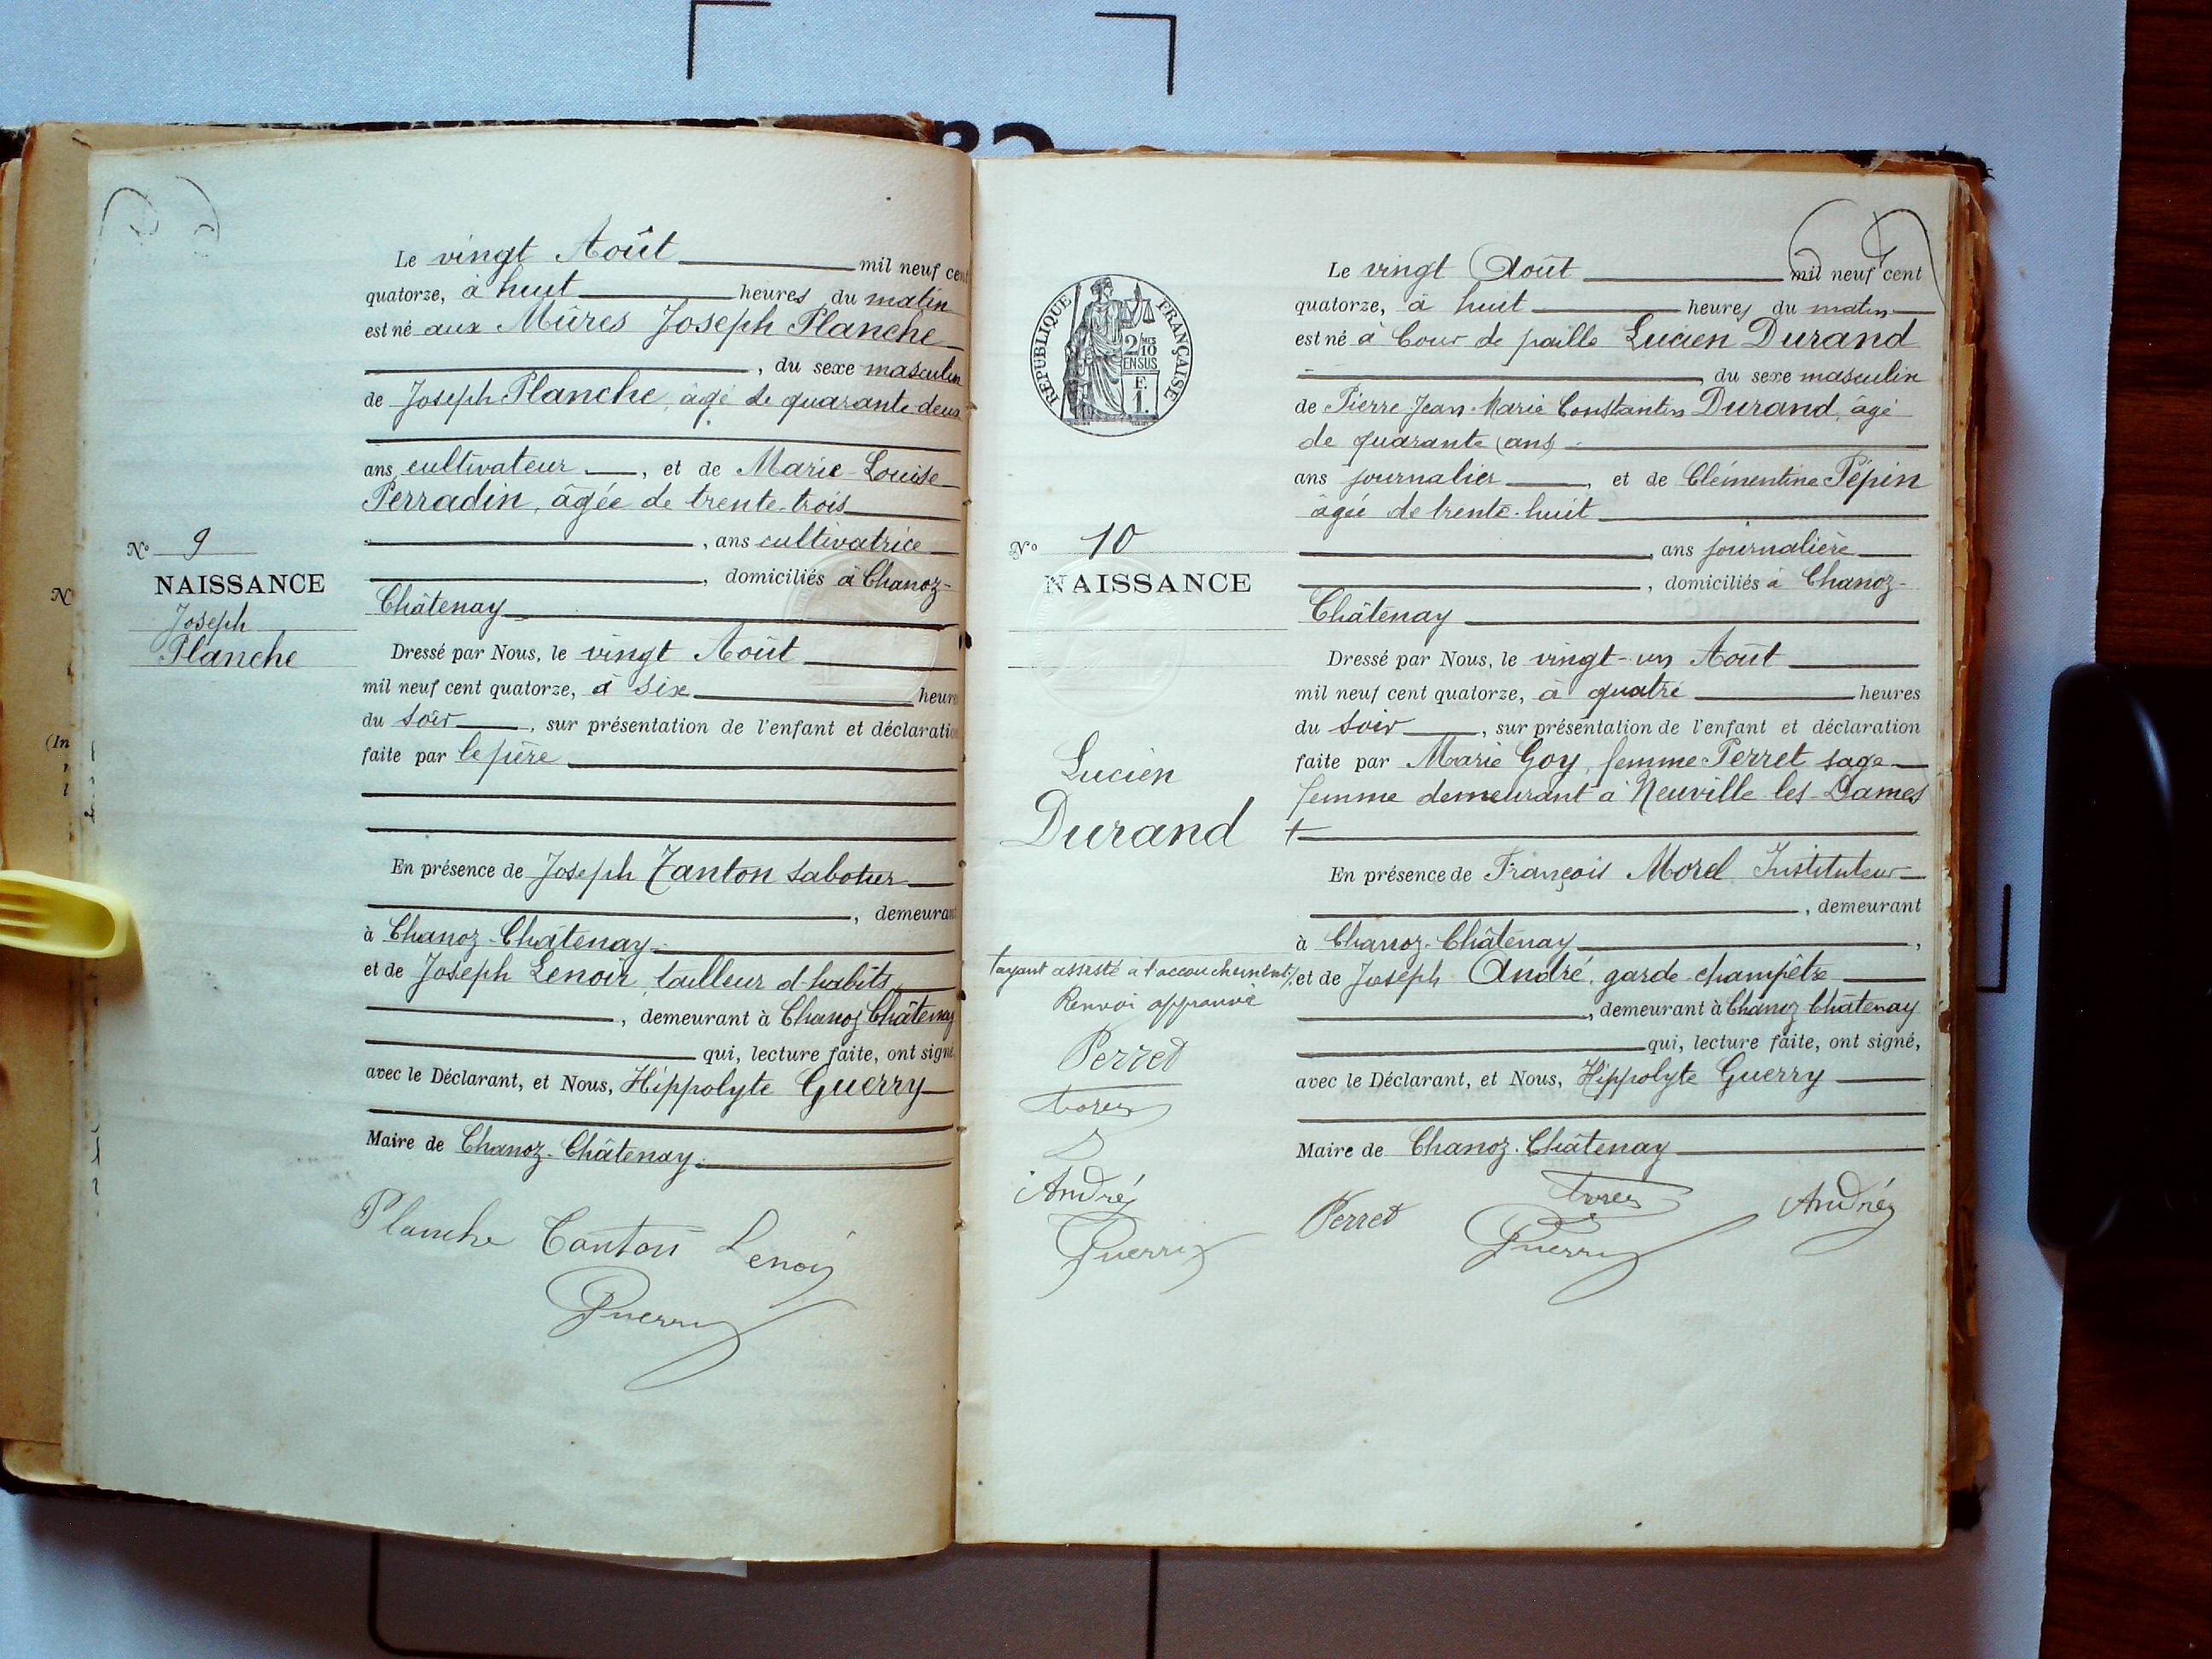 Le vingt Août mil neuf cent
quatorze, à huit heures du matin
est né aux Mûres Joseph Planche
, du sexe masculin
de Joseph Planche, âgé de quarante deux
ans cultivateur, et de Marie-Louise
Perradin, âgée de trente-trois
, ans cultivatrice
, domiciliés à Chanoz-
Châtenay
Dressé par Nous, le vingt Août
mil neuf cent quatorze, à six heures
du soir, sur présentation de l'enfant et déclaration
faite par le père
En présence de Joseph Tanton sabotier
, demeurant
à Chanoz-Châtenay
et de Joseph Lenoir, tailleur d'habits
, demeurant à Chanoz Châtenay
qui, lecture faite, ont signé
avec le Déclarant, et Nous, Hippolyte Guerry
Maire de Chanoz-Châtenay
Planche Tanton Lenoir
Guerry
N° 9
NAISSANCE
Joseph
Planche
N
(In
RÉPUBLIQUE FRANÇAISE
2/10
EN SUS
F.
1.
N° 10
NAISSANCE
Lucien
Durand
+ ayant assisté à l'accouchement /.
Renvoi approuvé
Perret
Morel
André
Guerry
Le vingt Août mil neuf cent
quatorze, à huit heures du matin
est né à Cour de paille Lucien Durand
, du sexe masculin
de Pierre Jean-Marie Constantin Durand, âgé
de quarante ans
ans journalier, et de Clémentine Pépin
âgée de trente-huit
, ans journalière
, domiciliés à Chanoz-
Châtenay
Dressé par Nous, le vingt-un Août
mil neuf cent quatorze, à quatre heures
du soir, sur présentation de l'enfant et déclaration
faite par Marie Goy, femme Perret sage-
femme demeurant à Neuville-les-Dames
+
En présence de François Morel Instituteur
, demeurant
à Chanoz-Châtenay,
et de Joseph André, garde-champêtre
, demeurant à Chanoz Châtenay
qui, lecture faite, ont signé,
avec le Déclarant, et Nous, Hippolyte Guerry
Maire de Chanoz-Châtenay
Perret Morel André
Guerry